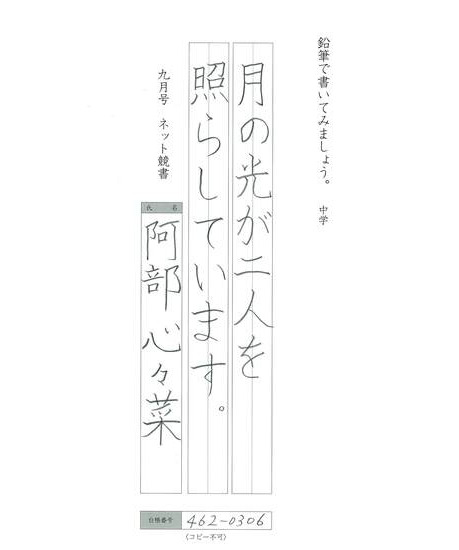 鉛筆で書いてみましょう。 中学
月の光が二人を
照らしています。
九月号 ネット競書
氏名
阿部心々菜
台帳番号 462-0306
(コピー不可)